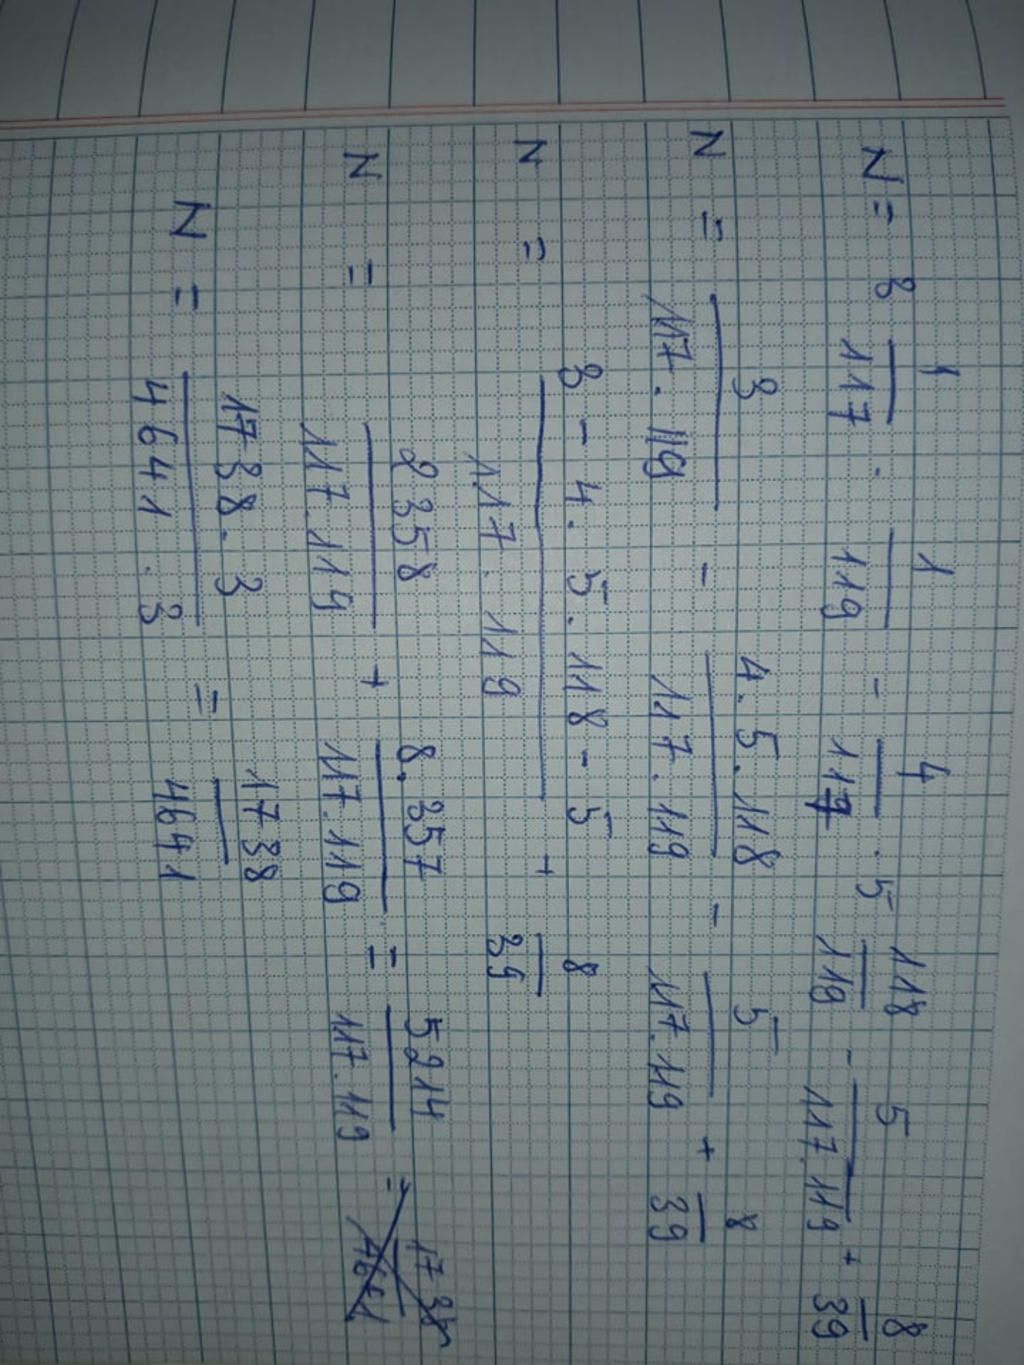 N = 3 1/117 . 1/119 - 4/117 . 5 118/119 - 5/117.119 + 8/39
N = 3/117.119 - 4.5.118/117.119 - 5/117.119 + 8/39
N = 3-4.5.118-5/117.119 + 8/39
N = 2358/117.119 + 8.357/117.119 = 5214/117.119 = 1738/4641
N = 1738.3/4641.3 = 1738/4641